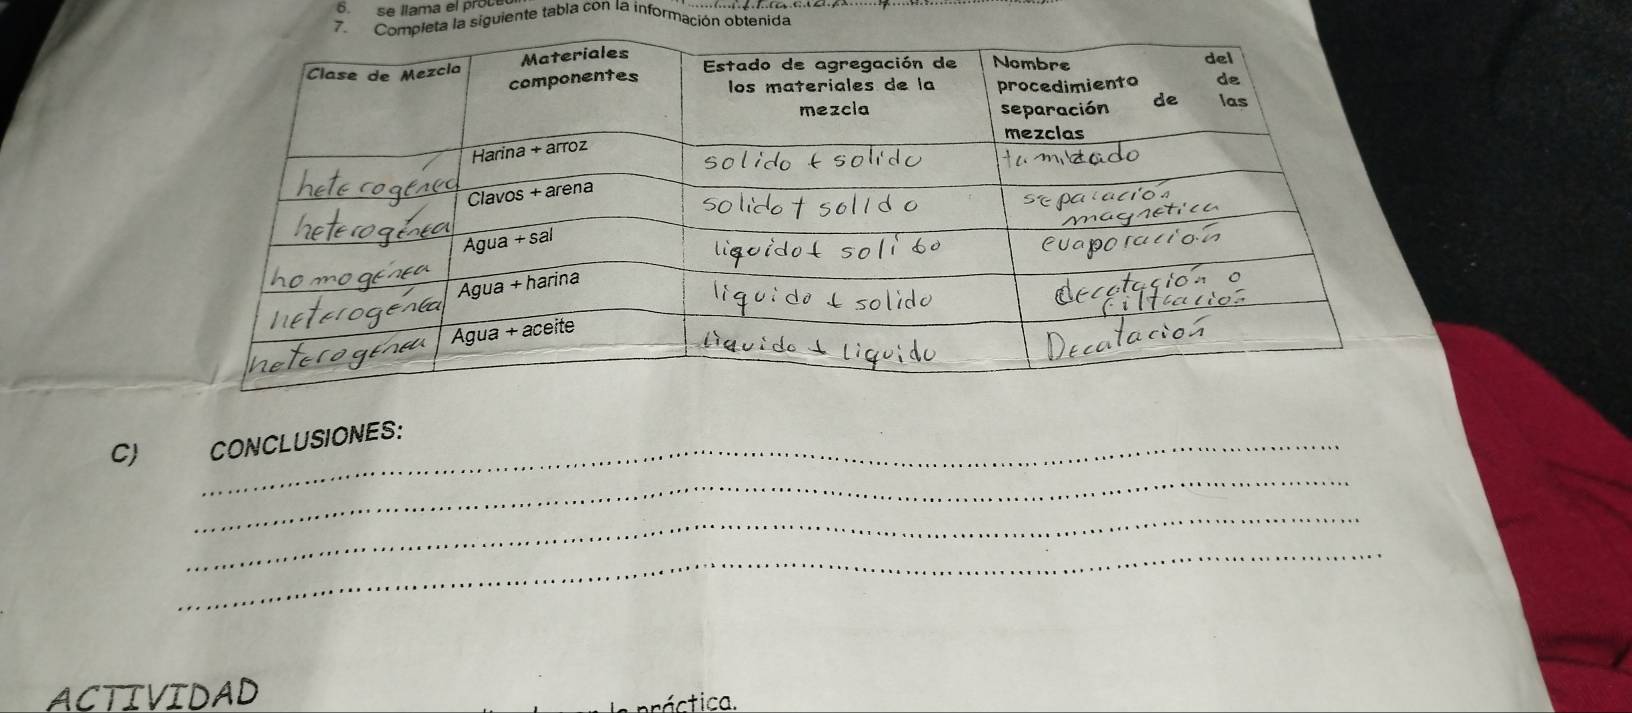 6. se llama el
7. Completa la siguiente tabla con la información obtenida
Clase de Mezcla
Materiales componentes
Estado de agregación de los materiales de la mezcla
Nombre del procedimiento de separación de las mezclas
heterogénea Harina + arroz solido + solido tamizado
heterogénea Clavos + arena solido + solido separación magnetica
homogénea Agua + sal liquido + solido evaporación
heterogénea Agua + harina liquido + solido decatación o filtración
heterogénea Agua + aceite liquido + liquido Decatación
C) CONCLUSIONES:
ACTIVIDAD
la práctica.